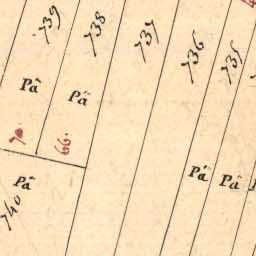 739
738
737
736
735
Pâ
Pâ
70.
66.
Pâ
Pâ
Pâ
740